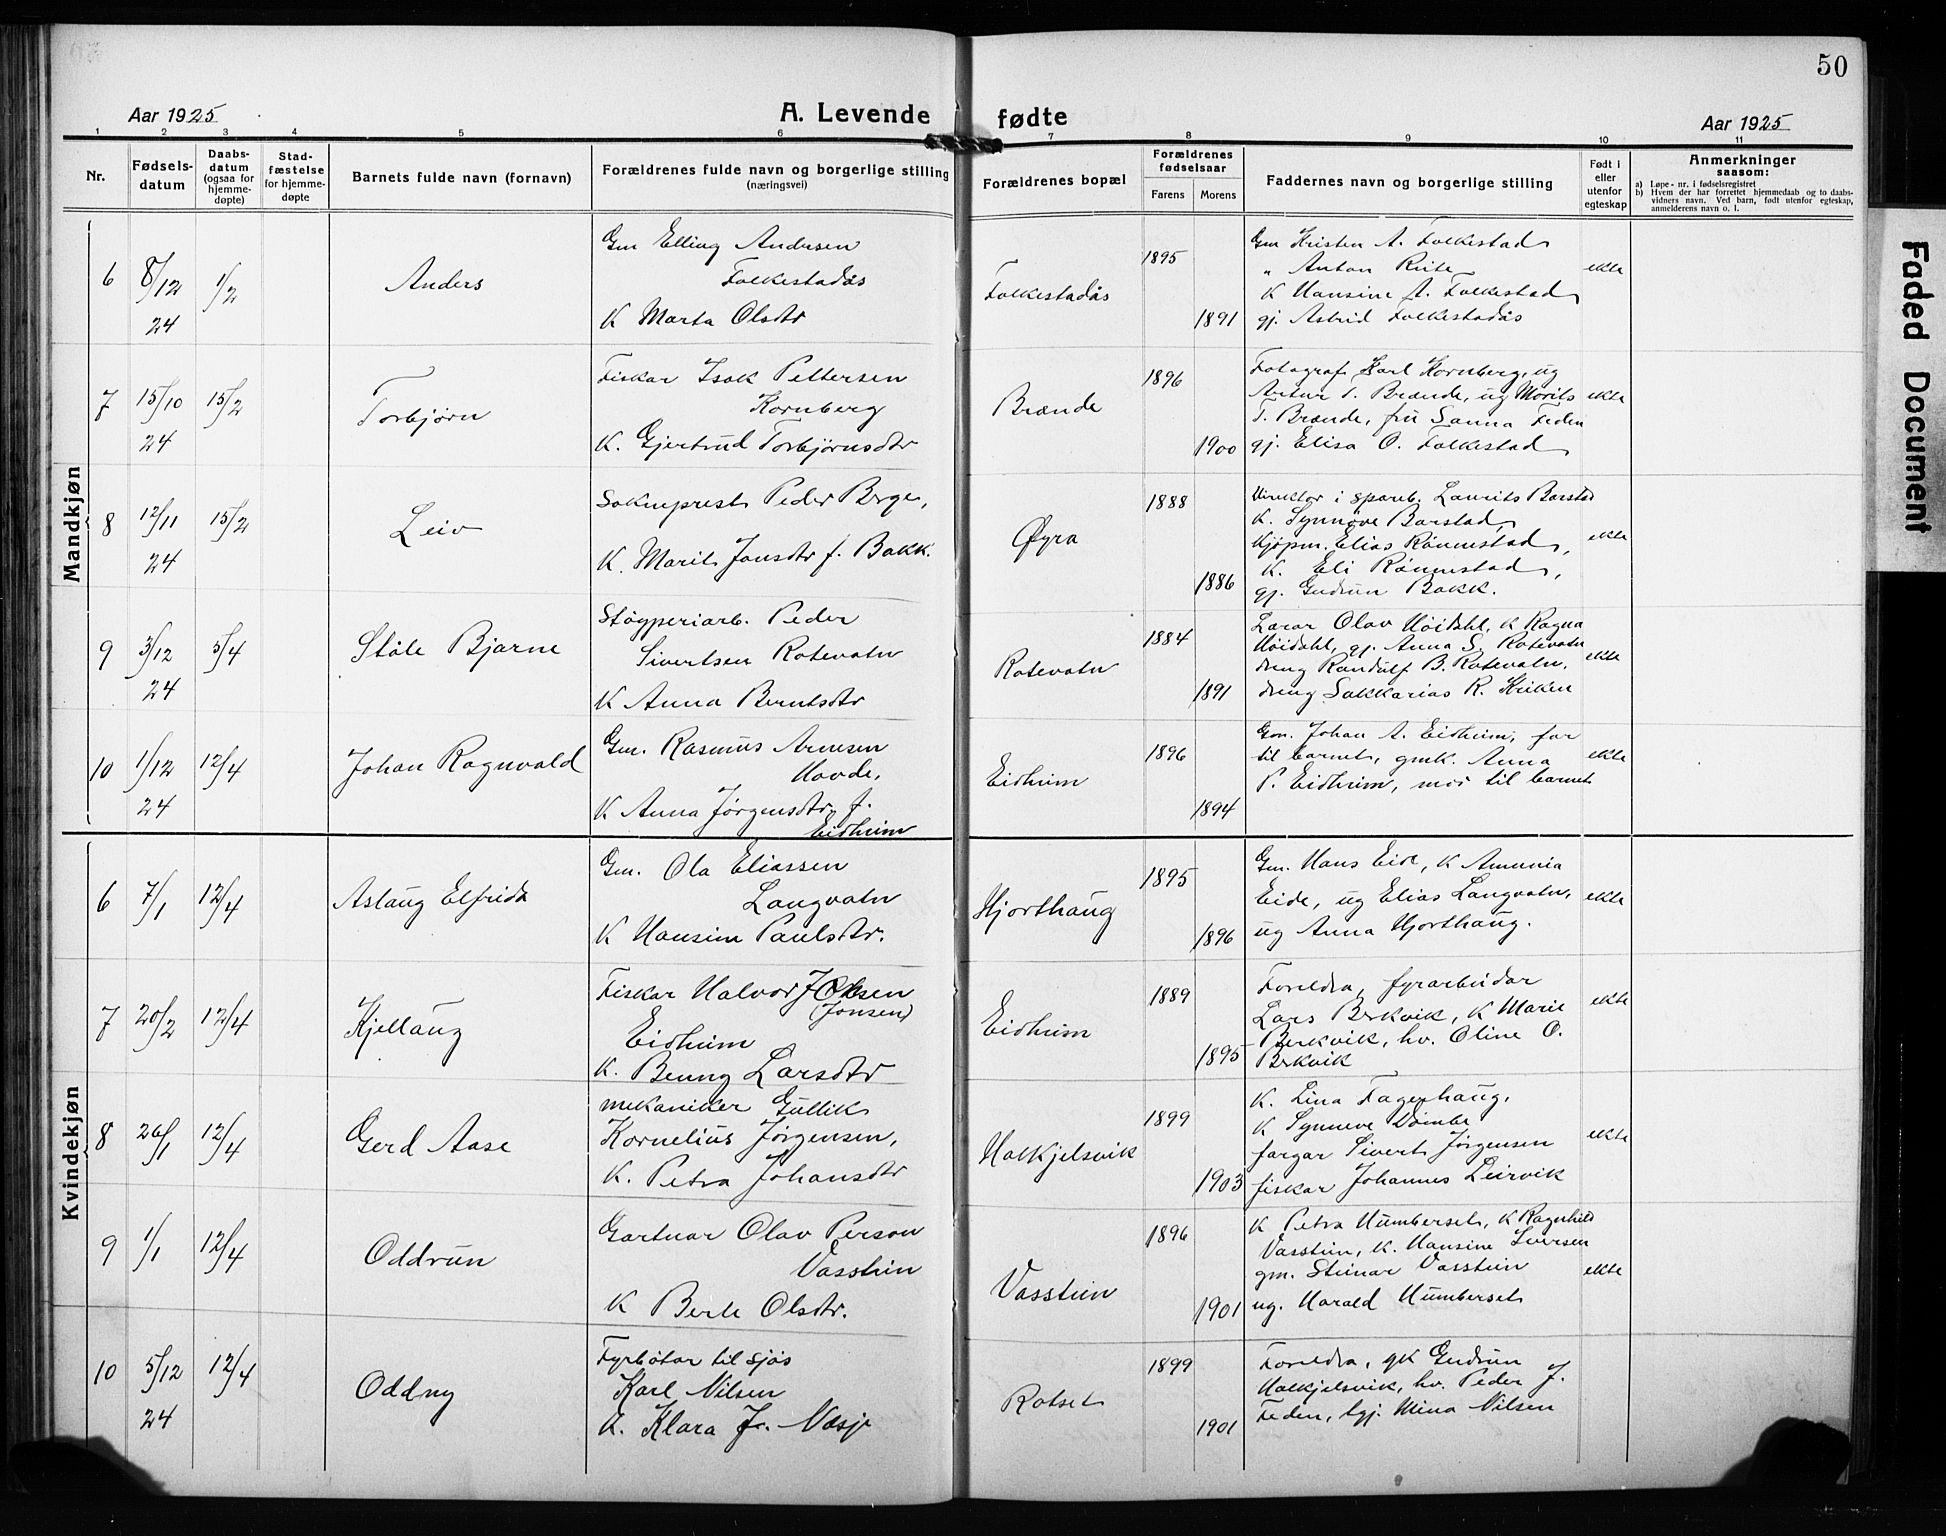 50
Aar 1925
A. Levende
fødte
Aar 1925
1 2 3 4 5 6 7 8 9 10 11
Nr.
Fødsels-
datum
Daabs-
datum
(ogsaa for
hjemme-
døpte)
Stad-
fæstelse
for hjemme-
døpte
Barnets fulde navn (fornavn)
Forældrenes fulde navn og borgerlige stilling
(næringsvei)
Forældrenes bopæl
Forældrenes
fødselsaar
Farens Morens
Faddernes navn og borgerlige stilling
Født i
eller
utenfor
egteskap
Anmerkninger
saasom:
a) Løpe-nr. i fødselsregistret
b) Hvem der har forrettet hjemmedaab og to daabs-
vidners navn. Ved barn, født utenfor egteskap,
anmelderens navn o. l.
Mandkjøn
6 8/12 24 1/2 Anders
Gm Elling Andersen
Folkestadås
K Marta Olsdtr
Folkestadås
1895 1891
Gm Kristen A. Folkestad
" Anton Rute
K Hansine A. Folkestad
gj. Astrid Folkestadås
ekte
7 15/10 24 15/2 Torbjørn
Fiskar Isak Pettersen
Kornberg
K. Gjertrud Torbjørnsdtr
Brænde
1896 1900
Fotograf Karl Kornberg, ug
Artur T. Brænde, ug Morits
T. Brænde, fru Sanna Feden
gj. Elisa O. Folkestad
ekte
8 12/11 24 15/2 Leiv
Sokneprest Peder Berge,
K. Marit Jonsdtr f. Bakk.
Øyra
1888 1886
Direktør i spareb. Laurits Barstad
K. Synnøve Barstad,
Kjøpm. Elias Rønnestad,
K. Eli Rønnestad,
gj. Gudrun Bakk.
ekte
9 3/12 24 5/4 Ståle Bjarne
Støyperiarb. Peder
Sivertsen Rotevatn
K Anna Berntsdtr
Rotevatn
1884 1891
Lærar Olav Høidahl, K Ragna
Høidahl, gj. Anna S. Rotevatn
dreng Randulf B. Rotevatn,
dreng Sakkarias R. Kriken
ekte
10 1/12 24 12/4 Johan Ragnvald
Gm. Rasmus Arnesen
Hovde,
K Anna Jørgensdtr, f.
Eidheim
Eidheim
1896 1894
Gm. Johan A. Eidheim, far
til barnet, gmk. Anna
P. Eidheim, mor til barnet
ekte
Kvindekjøn
6 7/1 12/4 Aslaug Elfrida
Gm. Ola Eliassen
Langvatn
K Hansine Paulsdtr.
Hjorthaug
1895 1896
Gm. Hans Eide, K Ammunia
Eide, ug Elias Langvatn,
ug Anna Hjorthaug.
ekte
7 20/2 12/4 Kjellaug
Fiskar Halvor Johnsen
(Jonsen)
Eidheim
K. Benny Larsdtr
Eidheim
1889 1895
Foreldra, fyrarbeidar
Lars Berkvik, K Marie
Berkvik, hv. Oline O.
Berkvik
ekte
8 26/1 12/4 Gerd Aase
mekaniker Gullik
Kornelius Jørgensen,
K. Petra Johansdtr
Halkjelsvik
1899 1903
K. Lina Fagerhaug,
K Synneve Dømbe
fargar Sivert Jørgensen
fiskar Johannes Leirvik
ekte
9 1/1 12/4 Oddrun
Gartnar Olav Person
Vasstein
K Berte Olsdtr.
Vasstein
1896 1901
K Petra Humberset, K Ragnhild
Vasstein, K. Hansine Iversen
gm. Steinar Vasstein
ug. Harald Humberset
ekte
10 5/12 24 12/4 Oddny
Fyrbøtar til sjøs
Karl Nilsen
K. Klara J. Næsje
Rotset
1899 1901
Foreldra, gk Gudrun
Halkjelsvik, hv. Peder J.
Feden, lgj. Mina Nilsen
Faded Document